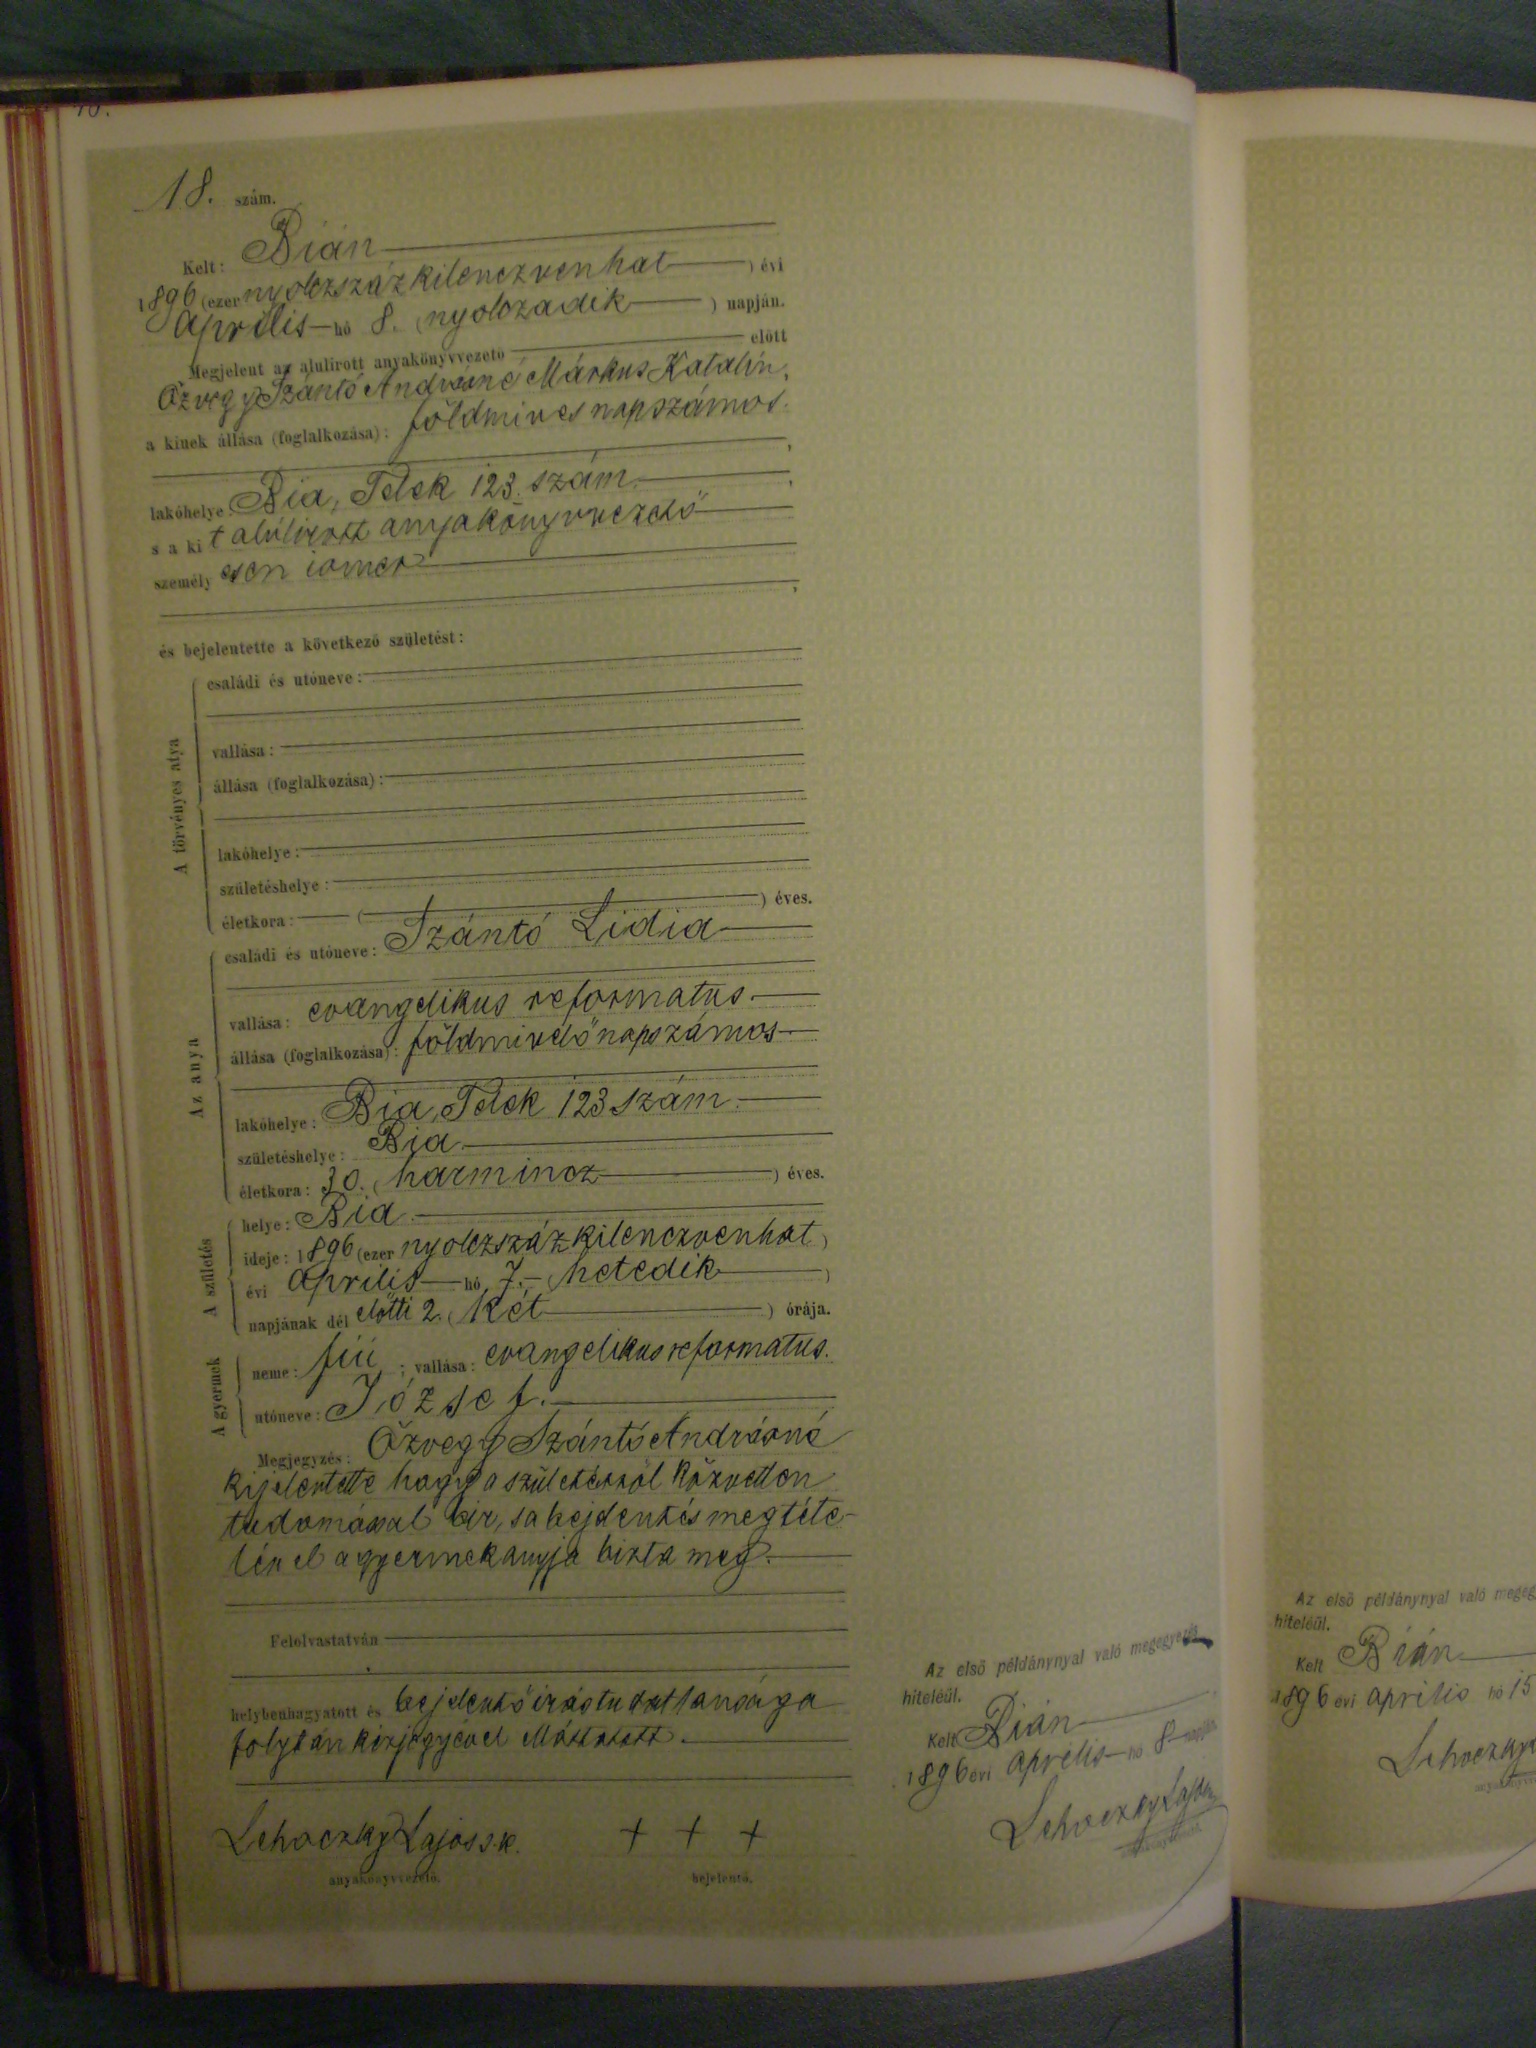 18. szám.
Kelt: Bián
1896 (ezer nyolczszázkilenczvenhat) évi
április hó 8. (nyolczadik) napján.
Megjelent az alulirott anyakönyvvezető előtt
Özvegy Szántó Andrásné Márkus Katalin,
a kinek állása (foglalkozása): földmives napszámos
lakóhelye Bia, Telek 123. szám
s a kit alúlirott anyakönyvvezető
személyesen ismer
és bejelentette a következő születést:
A törvényes atya
családi és utóneve:
vallása:
állása (foglalkozása):
lakóhelye:
születéshelye:
életkora: ( ) éves.
Az anya
családi és utóneve: Szántó Lidia
vallása: evangelikus reformatus.
állása (foglalkozása): földmivelő napszámos
lakóhelye: Bia, Telek 123 szám.
születéshelye: Bia.
életkora: 30. (harmincz) éves.
A születés
helye: Bia.
ideje: 1896 (ezer nyolczszázkilenczvenhat)
évi április hó 7. (hetedik)
napjának dél előtti 2. (két) órája.
A gyermek
neme: fiú; vallása: evangelikus reformatus.
utóneve: József.
Megjegyzés: Özvegy Szántó Andrásné
kijelentette hogy a születésről közvetlen
tudomással bir, s a bejelentés megtéte-
lével a gyermek anyja bizta meg.
Felolvastatván
helybenhagyatott és bejelentő irástudatlansága
folytán kézjegyével elláttatott.
Lehoczky Lajos s.k. + + +
anyakönyvvezető. bejelentő.
Az első példánynyal való megegyezés
hiteléül.
Kelt Bián
1896 évi április hó 8 napján
Lehoczky Lajos
anyakönyvvezető.
Az első példánynyal való megeg
hiteléül.
Kelt Bián
1896 évi április hó 15
Lehoczky